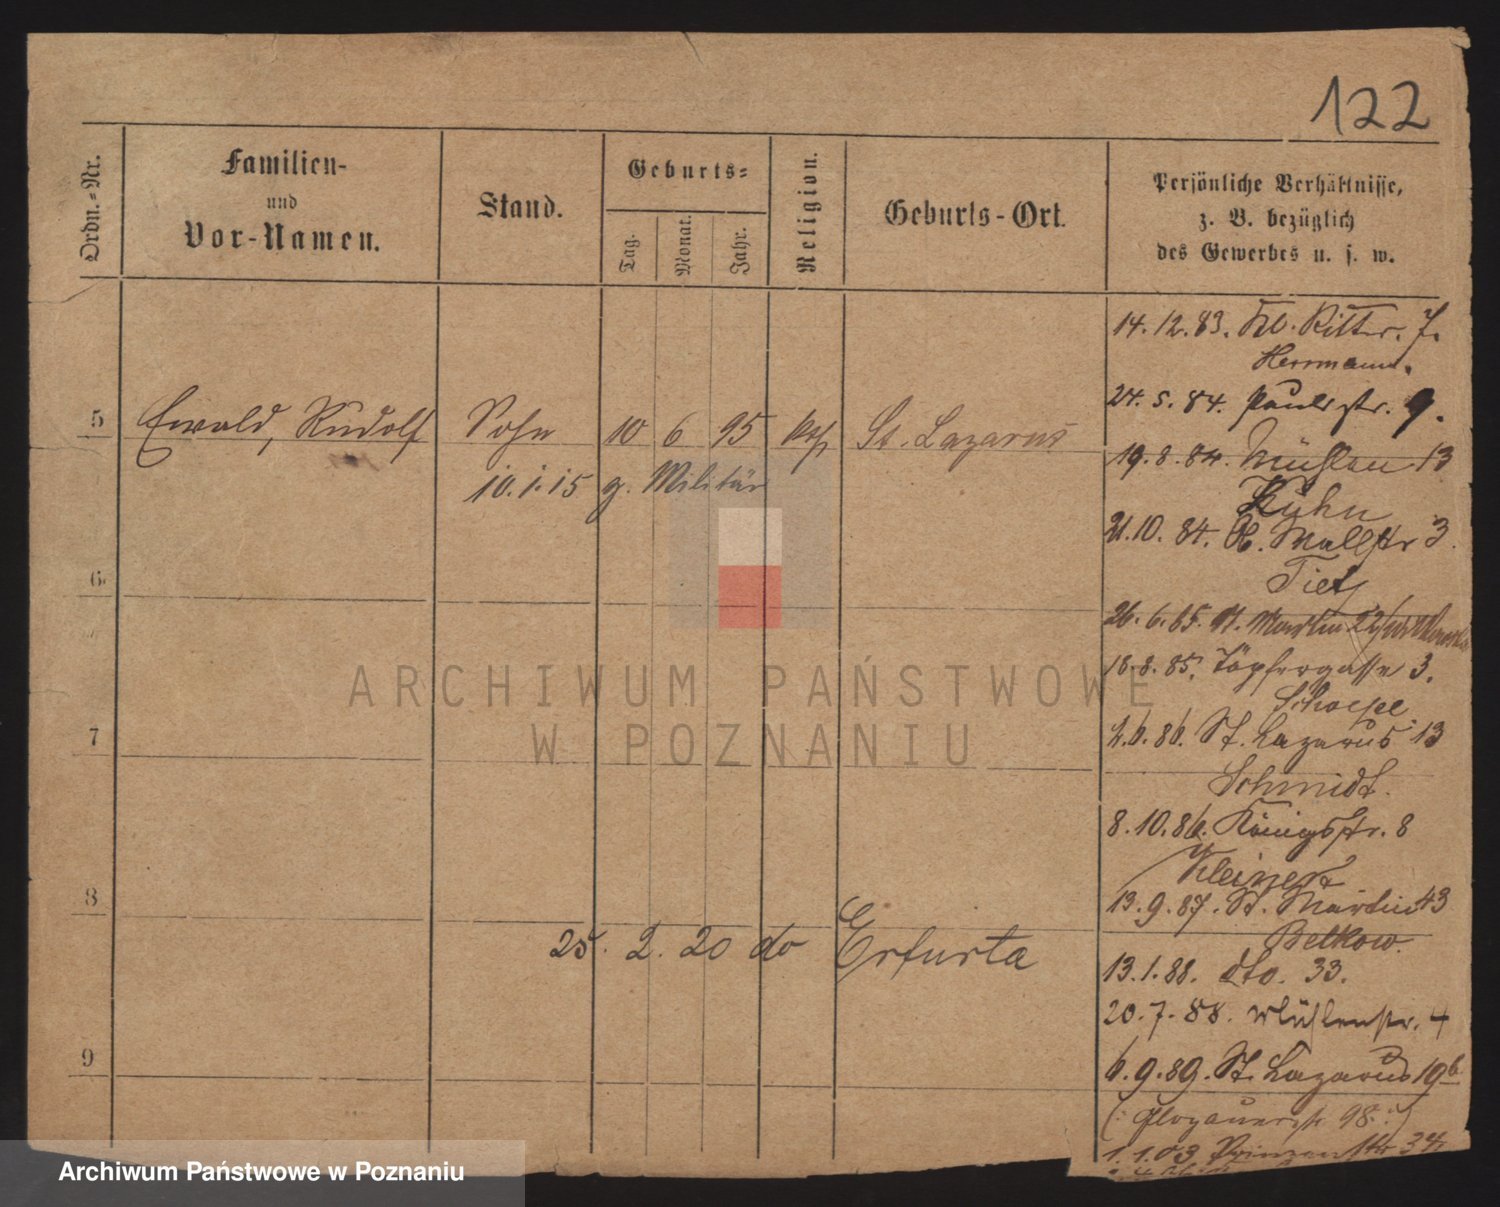 122
Ordn.-Nr.
Familien-
und
Vor-Namen.
Stand.
Geburts-
Tag.
Monat.
Jahr.
Religion.
Geburts-Ort.
Persönliche Verhältnisse,
z. B. bezüglich
des Gewerbes u. s. w.
5 Ewald, Rudolf Sohn 10 6 95 kath St. Lazarus
10.1.15 g. Militär
6.
7
8
25. 2. 20 do Erfurta
9
14.12.83. Kl. Ritter. 7.
Herrmann.
24.5.84. Paulistr. 9.
19.8.84. Mühlen 13
Kuhn
21.10.84. Wallstr 3.
Tietz
26.6.85. St. Martin 22
18.8.85. Töpfergasse 3.
2.6.86. St. Lazarus 13
Schmidt.
8.10.86. Königsstr. 8
Kleinert
13.9.87. St. Martin 43
Belkow.
13.1.88. dto. 33.
20.7.88. Mühlenstr. 4
6.9.89. St. Lazarus 19b
(: Glogauerstr 98. :)
1.1.03 Prinzenstr 34
ARCHIWUM PAŃSTWOWE
W POZNANIU
Archiwum Państwowe w Poznaniu